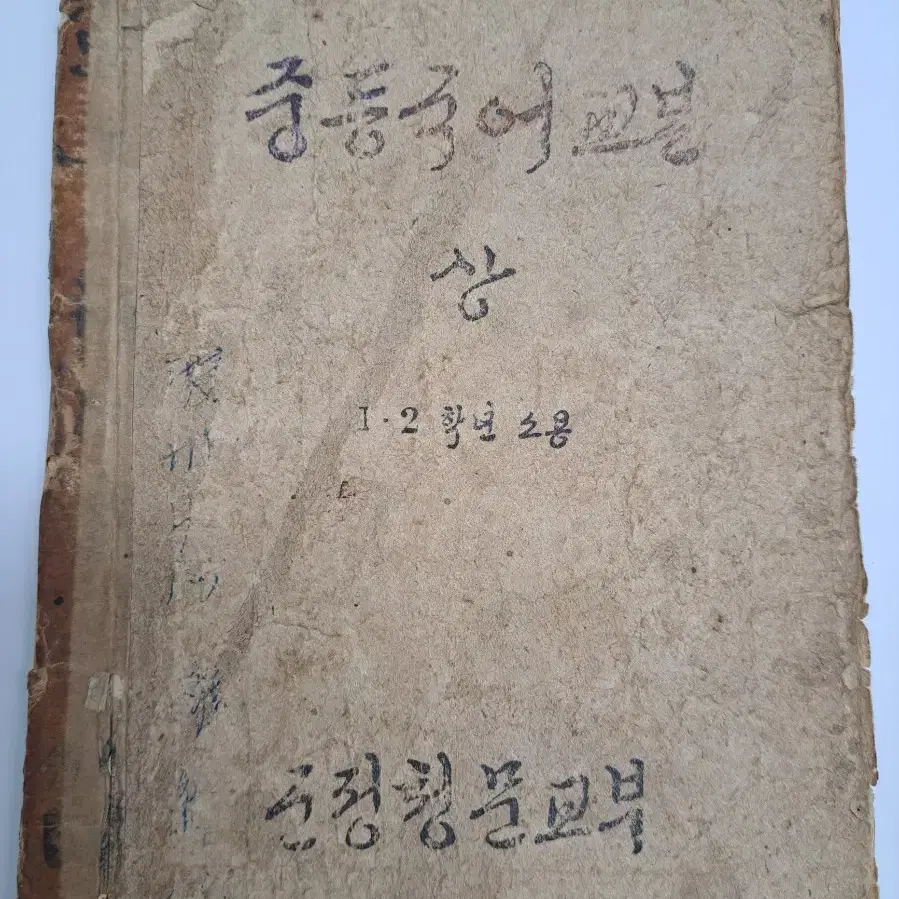 중등국어교본
상
1·2 학년 소용
군정청문교부